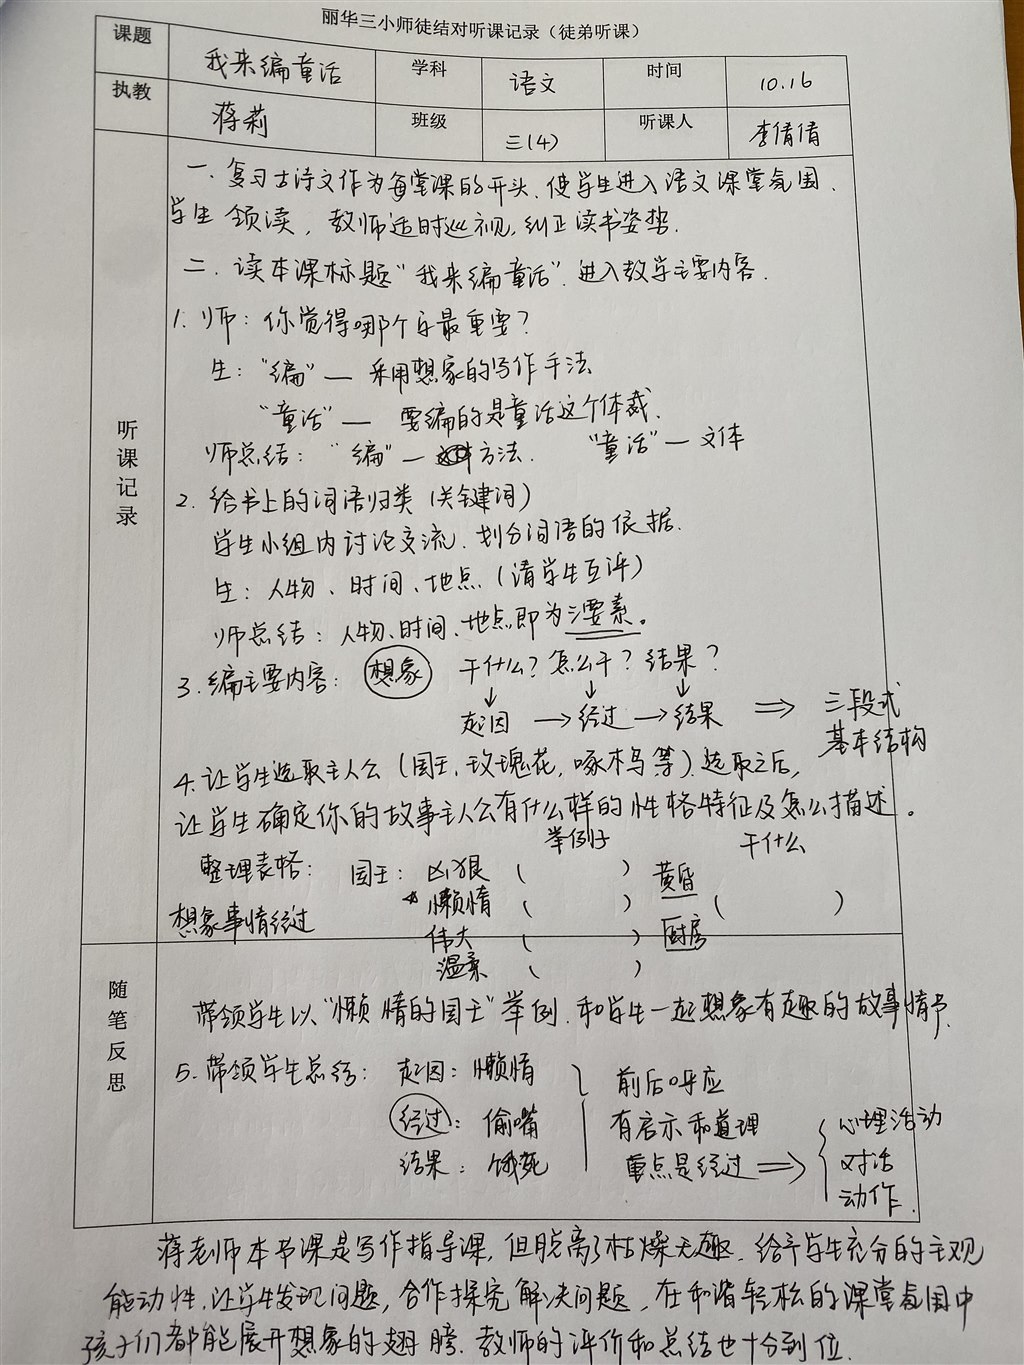 丽华三小师徒结对听课记录（徒弟听课）
课题 我来编童话 学科 语文 时间 10.16
执教 蒋莉 班级 三(4) 听课人 李倩倩
听课记录
一. 复习古诗文作为每堂课的开头、使学生进入语文课堂氛围、
学生领读，教师适时巡视，纠正读书姿势.
二. 读本课标题“我来编童话”. 进入教学主要内容.
1. 师：你觉得哪个字最重要？
生：“编”— 采用想象的写作手法
“童话”— 要编的是童话这个体裁.
师总结：“编”— 方法. “童话”— 文体
2. 给书上的词语归类（关键词）
学生小组内讨论交流. 划分词语的依据.
生：人物、时间、地点（请学生互评）
师总结：人物、时间、地点即为三要素。
3. 编主要内容：想象 干什么？怎么干？结果？
↓ ↓ ↓
起因 → 经过 → 结果 ⇒ 三段式
基本结构
4. 让学生选取主人公（国王、玫瑰花，啄木鸟等）. 选取之后，
让学生确定你的故事主人公有什么样的性格特征及怎么描述。
举例子 干什么
整理表格： 国王：凶狠（ ） 黄昏
懒惰（ ） （ ）
想象事情经过
伟大（ ） 厨房
温柔（ ）
随笔反思
带领学生以“懒惰的国王”举例. 和学生一起想象有趣的故事情节.
5. 带领学生总结：起因：懒惰 前后呼应
经过：偷嘴 有启示和道理
结果：饿死 重点是经过 ⇒ { 心理活动
对话
动作.
蒋老师本节课是写作指导课，但脱离了枯燥无趣. 给予学生充分的主观
能动性. 让学生发现问题，合作探究解决问题，在和谐轻松的课堂氛围中
孩子们都能展开想象的翅膀. 教师的评价和总结也十分到位.